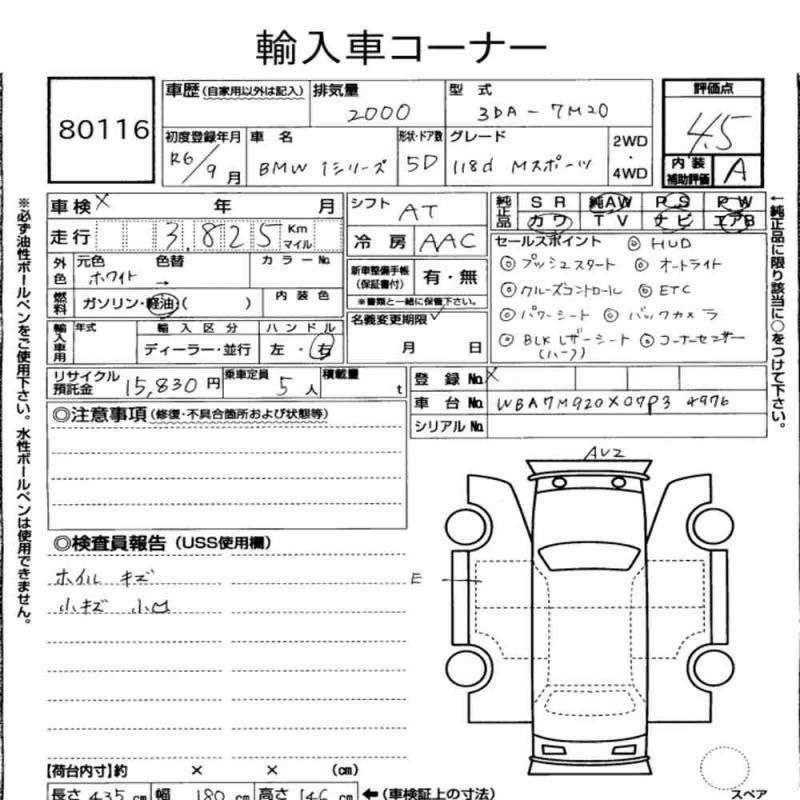 輸入車コーナー
80116
車歴 (自家用以外は記入) 排気量 2000 型式 3DA-7M20
評価点 4.5
内装補助評価 A
初度登録年月 R6/9月 車名 BMW 1シリーズ 形状・ドア数 5D グレード 118d Mスポーツ 2WD・4WD
車検 X 年 月
走行 3,825 Km マイル
外色 元色 ホワイト 色替 → カラーNo.
燃料 ガソリン・軽油( ) 内装色
輸入車用 年式 輸入区分 ディーラー・並行 ハンドル 左・右
シフト AT
冷房 AAC
新車整備手帳(保証書付) 有・無
※書類と一緒に保管下さい。
名義変更期限 ✓ 月 日
純正品 SR 純AW PS PW
カワ TV ナビ エアB
セールスポイント ◎ HUD
◎ プッシュスタート ◎ オートライト
◎ クルーズコントロール ◎ ETC
◎ パワーシート ◎ バックカメラ
◎ BLKレザーシート(ハーフ) ◎ コーナーセンサー
リサイクル預託金 15,830円 乗車定員 5人 積載量 t
登録No. X
車台No. WBA7M920X07P34976
シリアルNo.
◎注意事項 (修復・不具合箇所および状態等)
◎検査員報告 (USS使用欄)
ホイルキズ
小キズ 小凹
AU2
E
スペア
【荷台内寸】約 × × (cm)
長さ 435 cm 幅 180 cm 高さ 146 cm ←(車検証上の寸法)
※必ず油性ボールペンをご使用下さい。水性ボールペンは使用できません。
←純正品に限り該当に○をつけて下さい。